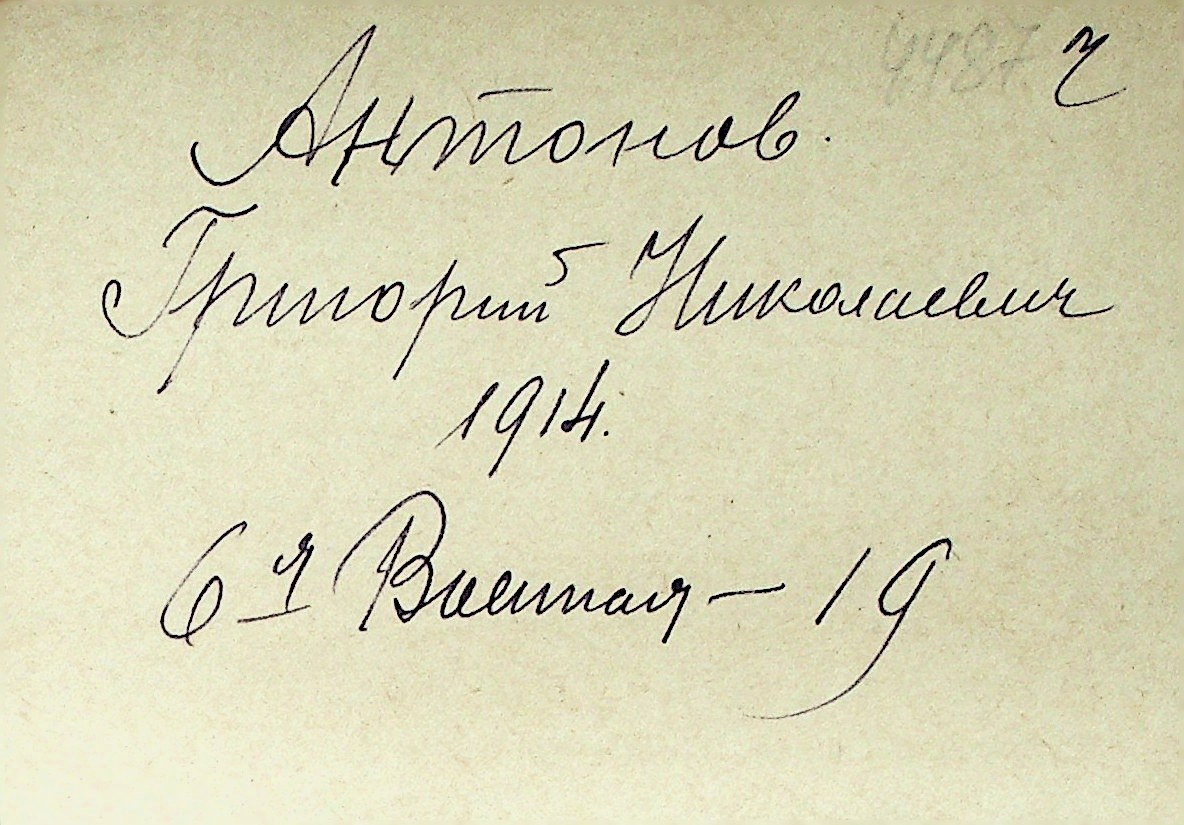 4487 ч
Антонов.
Григорий Николаевич
1914.
6-я Военная - 19